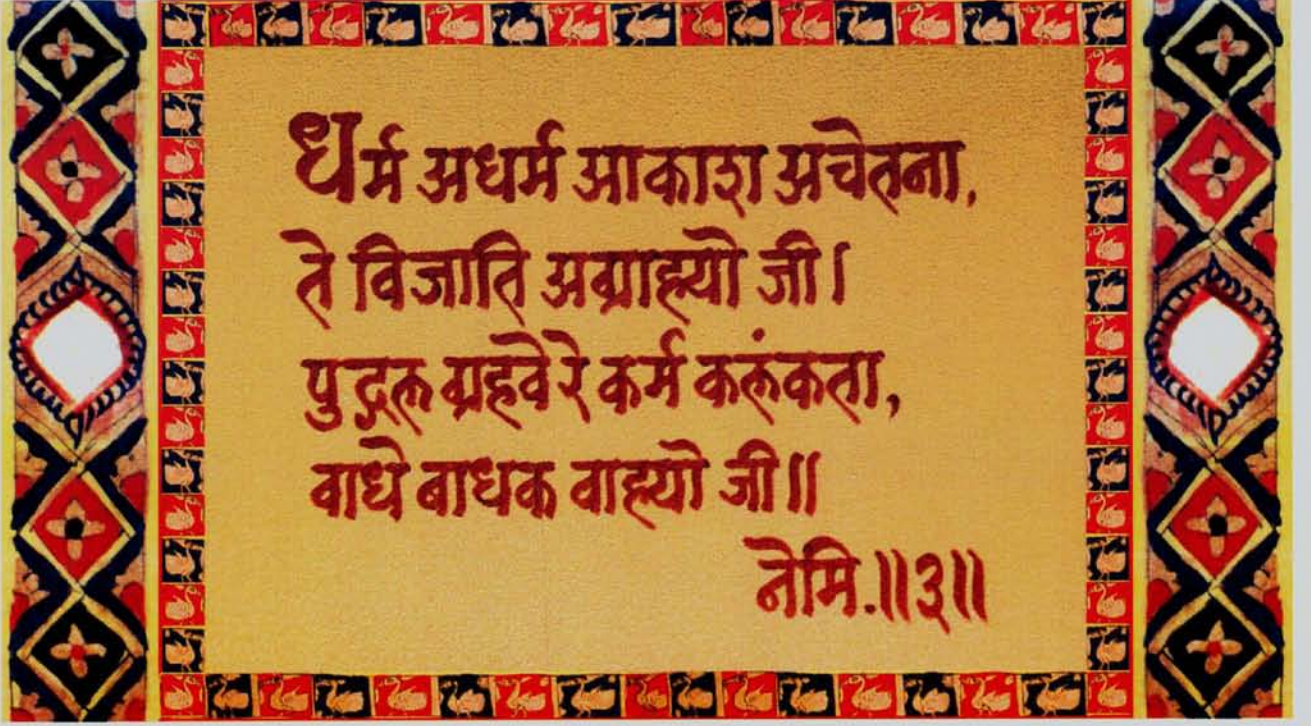 धर्म अधर्म आकाश अचेतना,
ते विजाति अग्राह्यो जी।
पुद्गल ग्रहवे रे कर्म कलंकता,
वाधे बाधक वाह्यो जी॥
नेमि.॥३॥